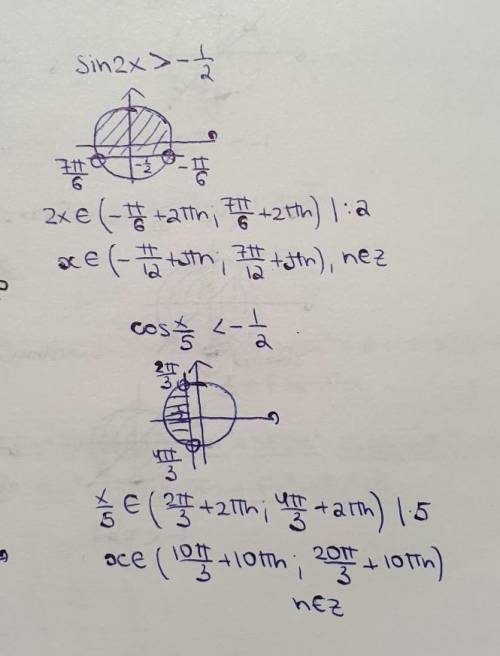 sin2x > -1/2
7π/6 -1/2 -π/6
2x ∈ (-π/6 + 2πn; 7π/6 + 2πn) | :2
x ∈ (-π/12 + πn; 7π/12 + πn), n∈z
cos x/5 < -1/2
2π/3
4π/3
x/5 ∈ (2π/3 + 2πn; 4π/3 + 2πn) | ·5
x ∈ (10π/3 + 10πn; 20π/3 + 10πn)
n∈z